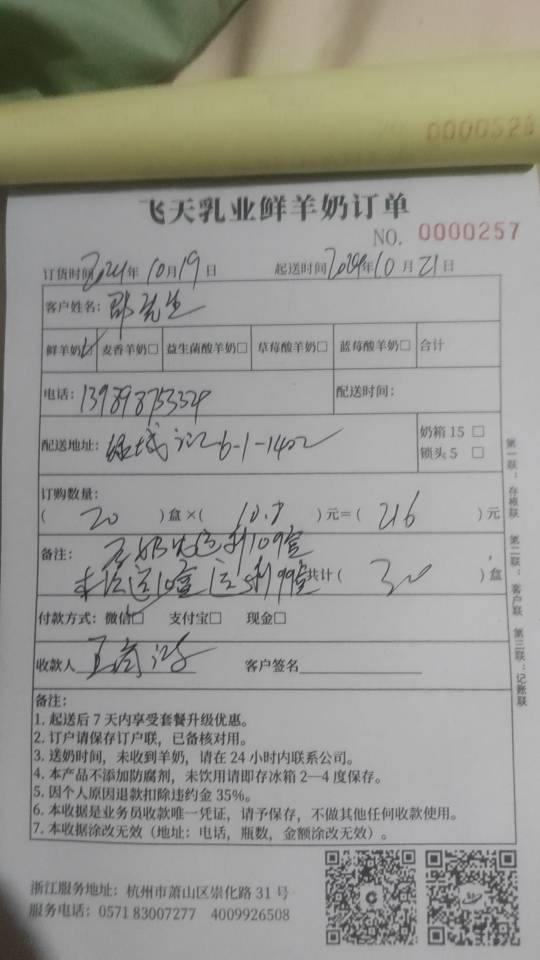 0000523
飞天乳业鲜羊奶订单
NO. 0000257
订货时间 2024年10月19日 起送时间 2024年10月21日
客户姓名：邵先生
鲜羊奶☑ 麦香羊奶□ 益生菌酸羊奶□ 草莓酸羊奶□ 蓝莓酸羊奶□ 合计
电话： 配送时间：
配送地址：绿城 6-1-1402
奶箱 15 □
锁头 5 □
订购数量：
( 20 ) 盒 ×( 10.8 ) 元 = ( 216 ) 元
备注：
送10盒 共计 ( 30 ) 盒
付款方式：微信☑ 支付宝□ 现金□
收款人 客户签名
备注：
1. 起送后 7 天内享受套餐升级优惠。
2. 订户请保存订户联，已备核对用。
3. 送奶时间，未收到羊奶，请在 24 小时内联系公司。
4. 本产品不添加防腐剂，未饮用请即存冰箱 2—4 度保存。
5. 因个人原因退款扣除违约金 35%。
6. 本收据是业务员收款唯一凭证，请予保存，不做其他任何收款使用。
7. 本收据涂改无效（地址：电话，瓶数，金额涂改无效）。
第一联：存根联 第二联：客户联 第三联：记账联
浙江服务地址：杭州市萧山区崇化路 31 号
服务电话：0571 83007277 4009926508